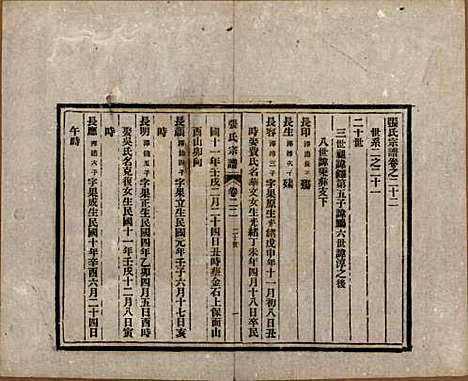 張氏宗譜卷之二十二
世系二之二十一
二十世
三世祖諱鐸第五子諱鵬六世諱淳之後
八世諱秉彝支下
長印
殤
長生
殤
長容 字果原生光緒戊申年十一月初八日丑
時娶費氏名華文女生光緒丁未年四月十八日卒民
張氏宗譜 卷二二 二十世 一
國十一年壬戌二月二十四日丑時葬金石上保面山
酉山卯向
長嗣 字果立生民國元年壬子六月十七日亥
時
長明 字果正生民國四年乙卯四月五日酉時
娶吳氏名克復女生民國十一年壬戌十二月八日寅
時
長應 字果成生民國十年辛酉六月二十四日
午時